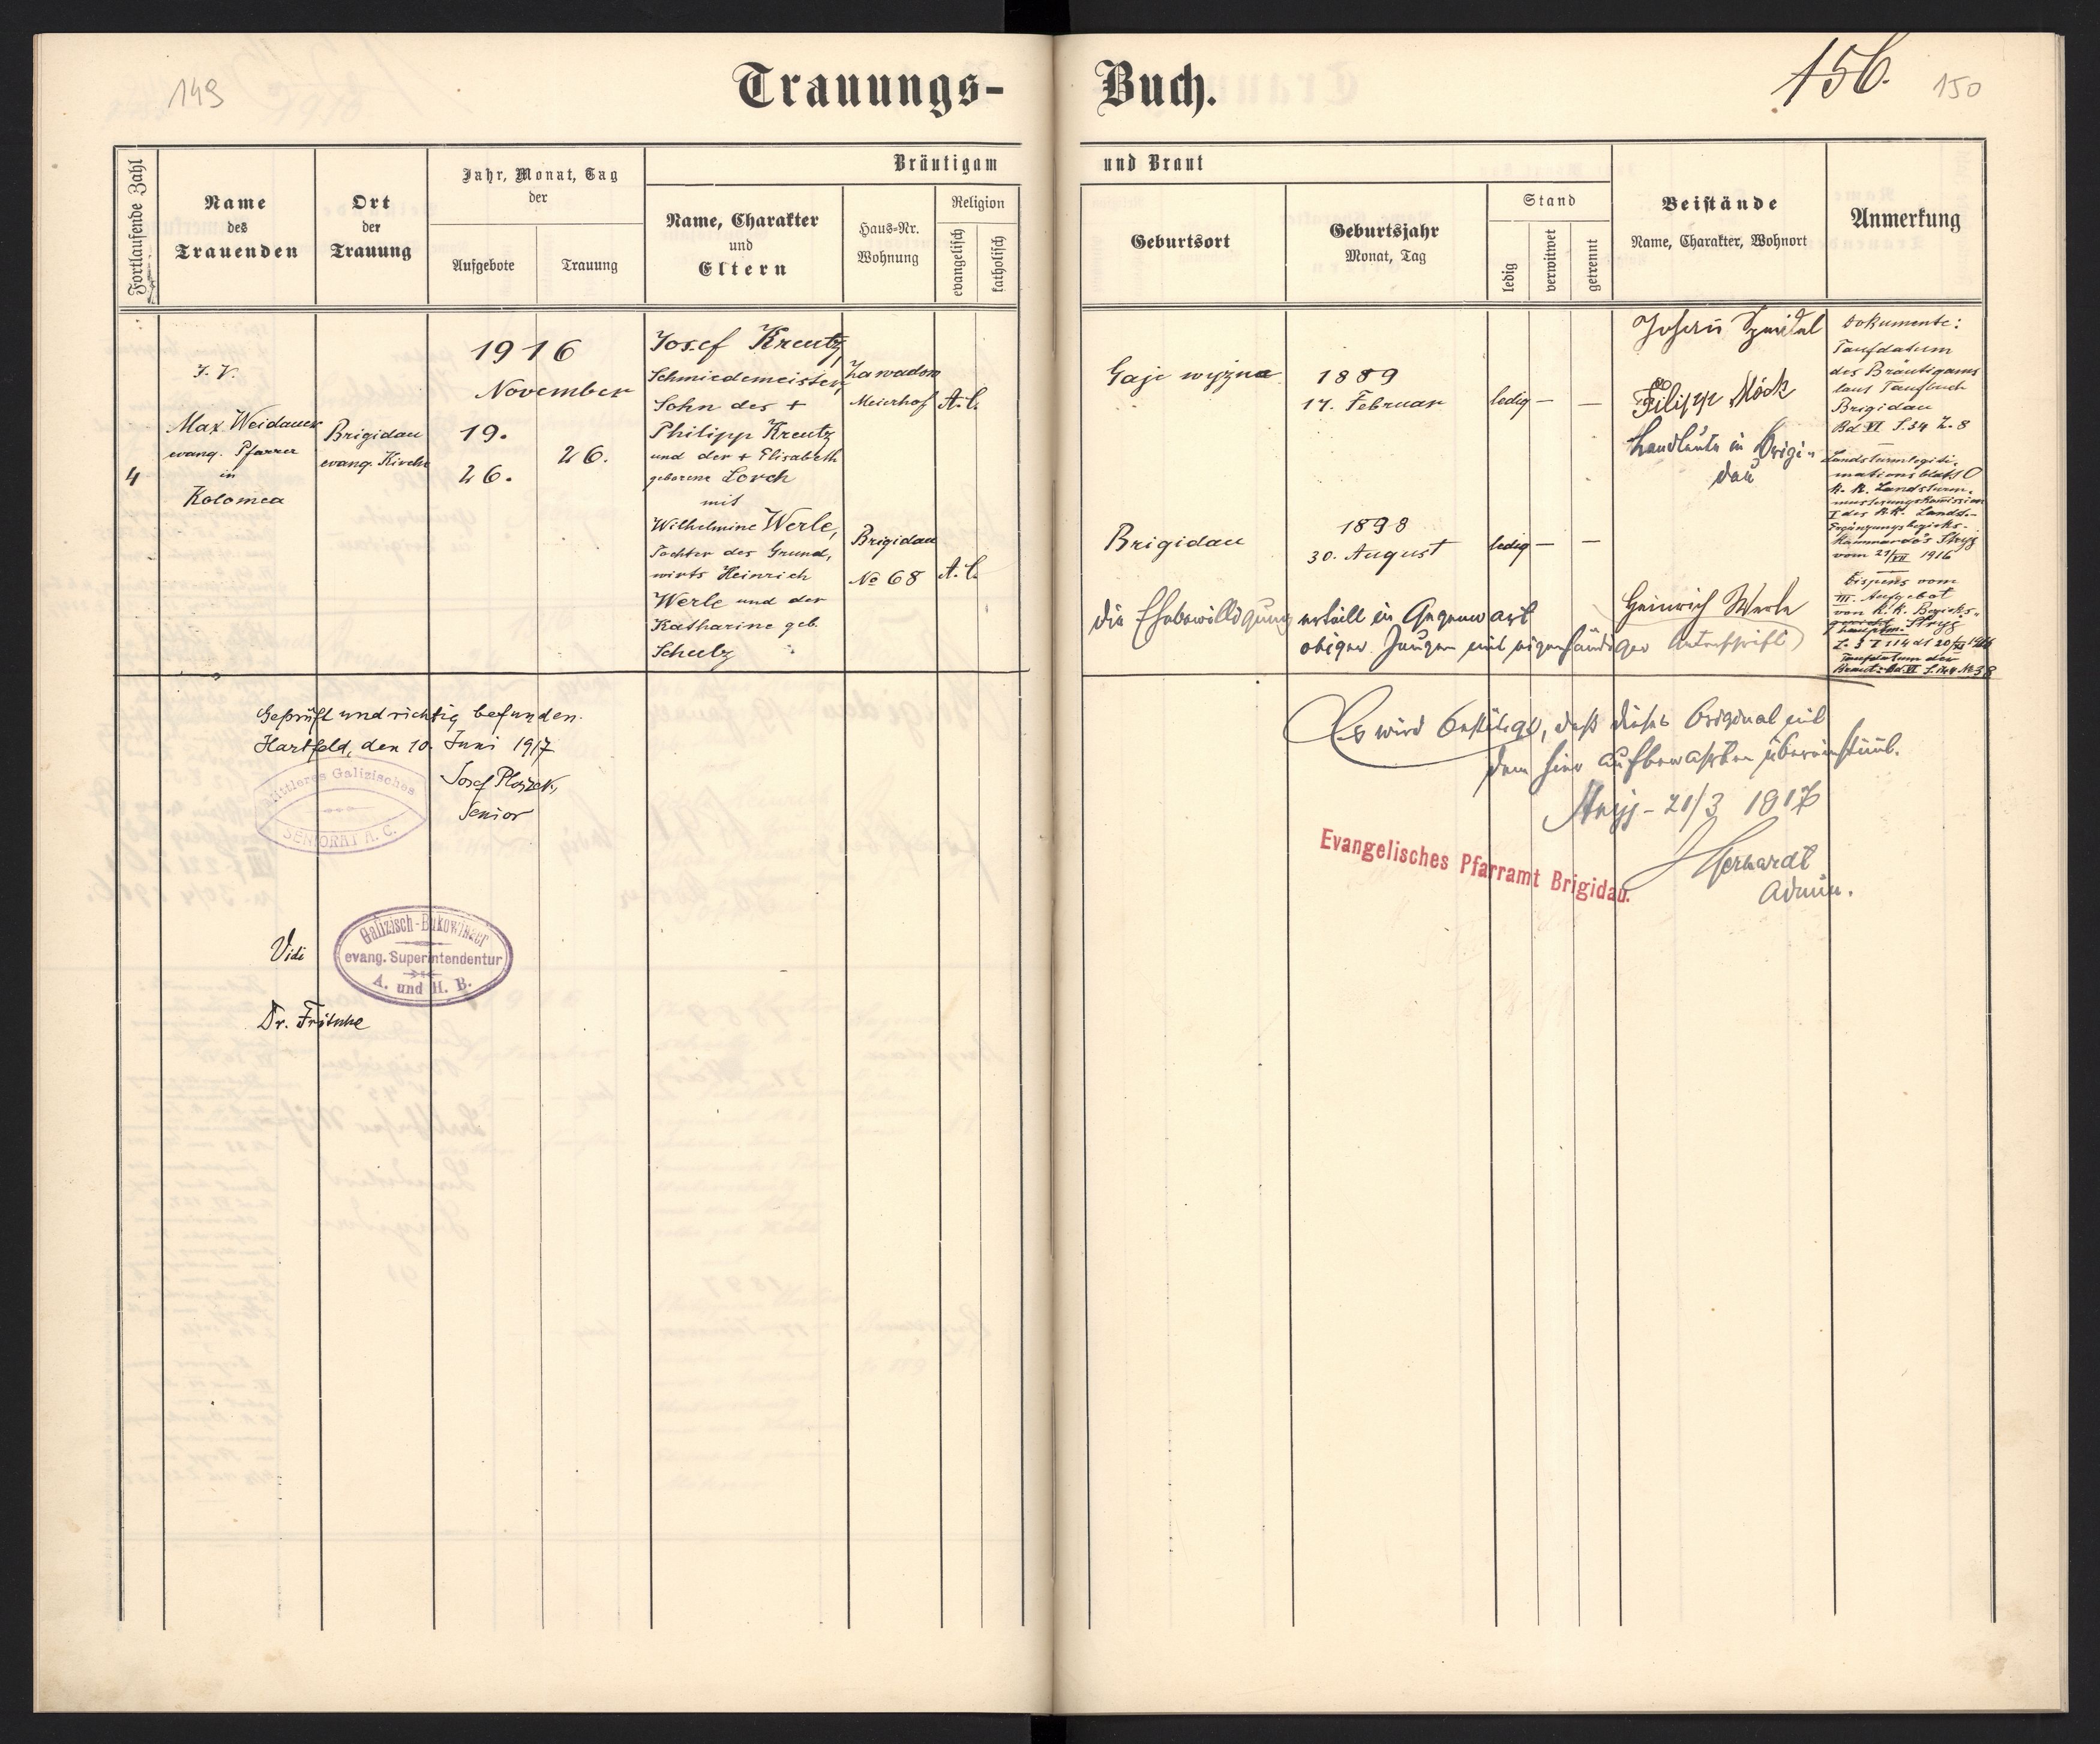 149
Trauungs-Buch.
156.
150
Fortlaufende Zahl
Name
des
Trauenden
Ort
der
Trauung
Jahr, Monat, Tag
der
Aufgebote
Trauung
Bräutigam und Braut
Name, Charakter
und
Eltern
Haus-Nr.
Wohnung
Religion
evangelisch
katholisch
Geburtsort
Geburtsjahr
Monat, Tag
Stand
ledig
verwitwet
getrennt
Beistände
Name, Charakter, Wohnort
Anmerkung
4
I. V.
Max Weidauer
evang. Pfarrer
in
Kolomea
Brigidau
evang. Kirche
1916
November
19.
26.
26.
Josef Kreutz,
Schmiedemeister,
Sohn des +
Philipp Kreutz
und der + Elisabeth
geborene Lorch
mit
Wilhelmine Werle,
Tochter des Grund-
wirts Heinrich
Werle und der
Katharine geb.
Schulz
Zawadow
Meierhof
A. C.
Brigidau
No 68
A. C.
Gaje wyzne
1889
17. Februar
ledig — —
Brigidau
1898
30. August
ledig — —
Johann
Filipp Höck
Landleute in Brigi-
dau
Heinrich Werle
die Ehebewilligung erteilt in Gegenwart
obiger Zeugen mit eigenhändiger Unterschrift)
Dokumente:
Taufdatum
des Bräutigams
laut Taufbuch
Brigidau
Bd VI S. 34 Z. 8
Landsturmlegiti-
mationsblatt
k. k. Landsturm-
musterungskommission
I des k.k. Lands.-
Ergänzungsbezirks-
kommando's Stryj
vom 21/VII 1916
Dispens vom
III. Aufgebot
von k. k. Bezirks-
hauptm. Stryj
Taufdatum der
Braut: Bd VI S. 124 No 38
Geprüft und richtig befunden.
Hartfeld, den 10. Juni 1917
Josef Ploszek,
Senior
Mittleres Galizisches
SENIORAT A. C.
Vidi
Galizisch-Bukowinaer
evang. Superintendentur
A. und H. B.
Dr. Fritsche
Es wird bestätigt, daß dieses Original mit
dem hier aufbewahrten übereinstimmt.
Stryj - 21/3 1917
Gerhardt
Admin.
Evangelisches Pfarramt Brigidau.